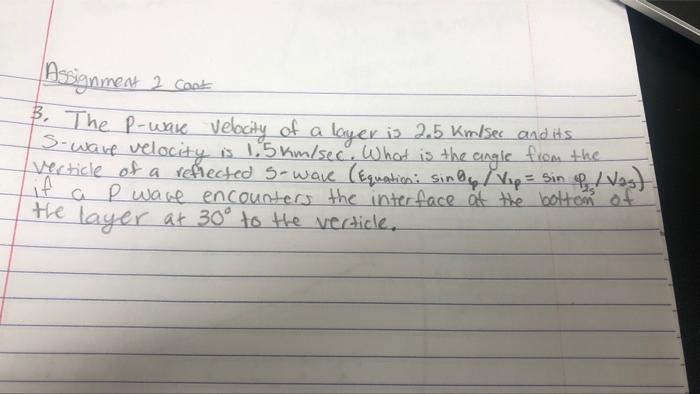 Assignment 2 cont
3. The P-wave velocity of a layer is 2.5 Km/sec and its
S-wave velocity is 1.5 km/sec. What is the angle from the
verticle of a reflected S-wave (Equation: sin θ / V₁p = sin / V₂s)
if a P wave encounters the interface at the bottom of
the layer at 30° to the verticle.